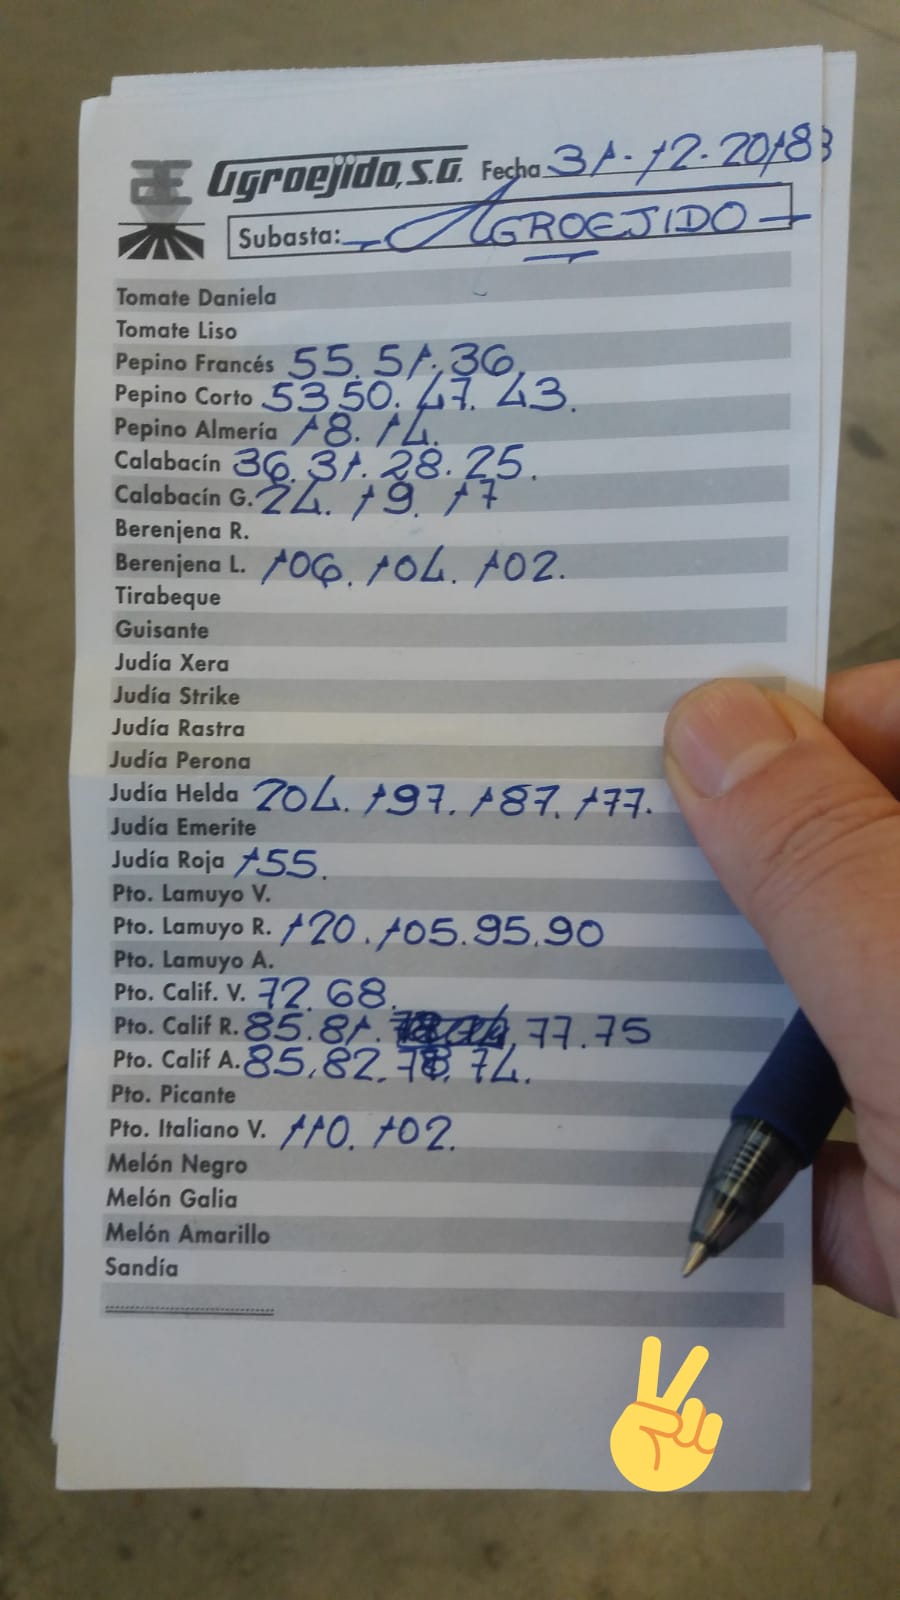 Agroejido, S.A. Fecha 31-12-2018
Subasta: AGROEJIDO
Tomate Daniela
Tomate Liso
Pepino Francés 55. 51. 36.
Pepino Corto 53 50. 47. 43.
Pepino Almería 18. 14.
Calabacín 36. 31. 28. 25.
Calabacín G. 24. 19. 17
Berenjena R.
Berenjena L. 106. 104. 102.
Tirabeque
Guisante
Judía Xera
Judía Strike
Judía Rastra
Judía Perona
Judía Helda 204. 197. 187. 177.
Judía Emerite
Judía Roja 155.
Pto. Lamuyo V.
Pto. Lamuyo R. 120. 105. 95. 90
Pto. Lamuyo A.
Pto. Calif. V. 72. 68.
Pto. Calif R. 85. 81. 77. 75
Pto. Calif A. 85. 82. 78. 74.
Pto. Picante
Pto. Italiano V. 110. 102.
Melón Negro
Melón Galia
Melón Amarillo
Sandía